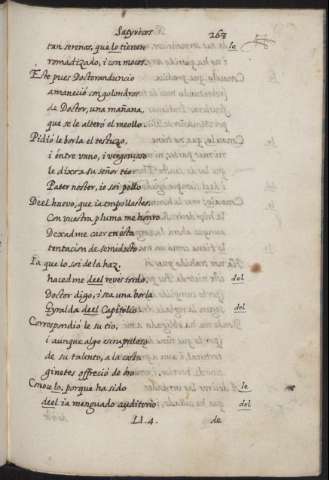 Satyricos 268
tan serenas, que lo tienen le
romadizado, i con moces.
Este pues Doctoranduncio
amaneciò con golondros
de Doctor, una mañana,
que se le alterò el meollo.
Pidiò le borla el testuzo,
i entre vano, i vergonçoso
le dixo a su señor tio
Pater noster, io soi pollo
Del huevo, que ia empollastes.
Con vuestra pluma me honro
Dexadme caer en esta
tentacion de semidocto.
Ia que lo soi de la haz.
hacedme deel reverendo, del
Doctor digo, i sea una borla
Gyralda deel Capitolio del
Correspondiò le su tio,
i aunque algo
de su talento, a la costa
ginetes offreciò de
Crioulo, porque ha sido le
deel ia menguado auditorio del
Ll.4. de